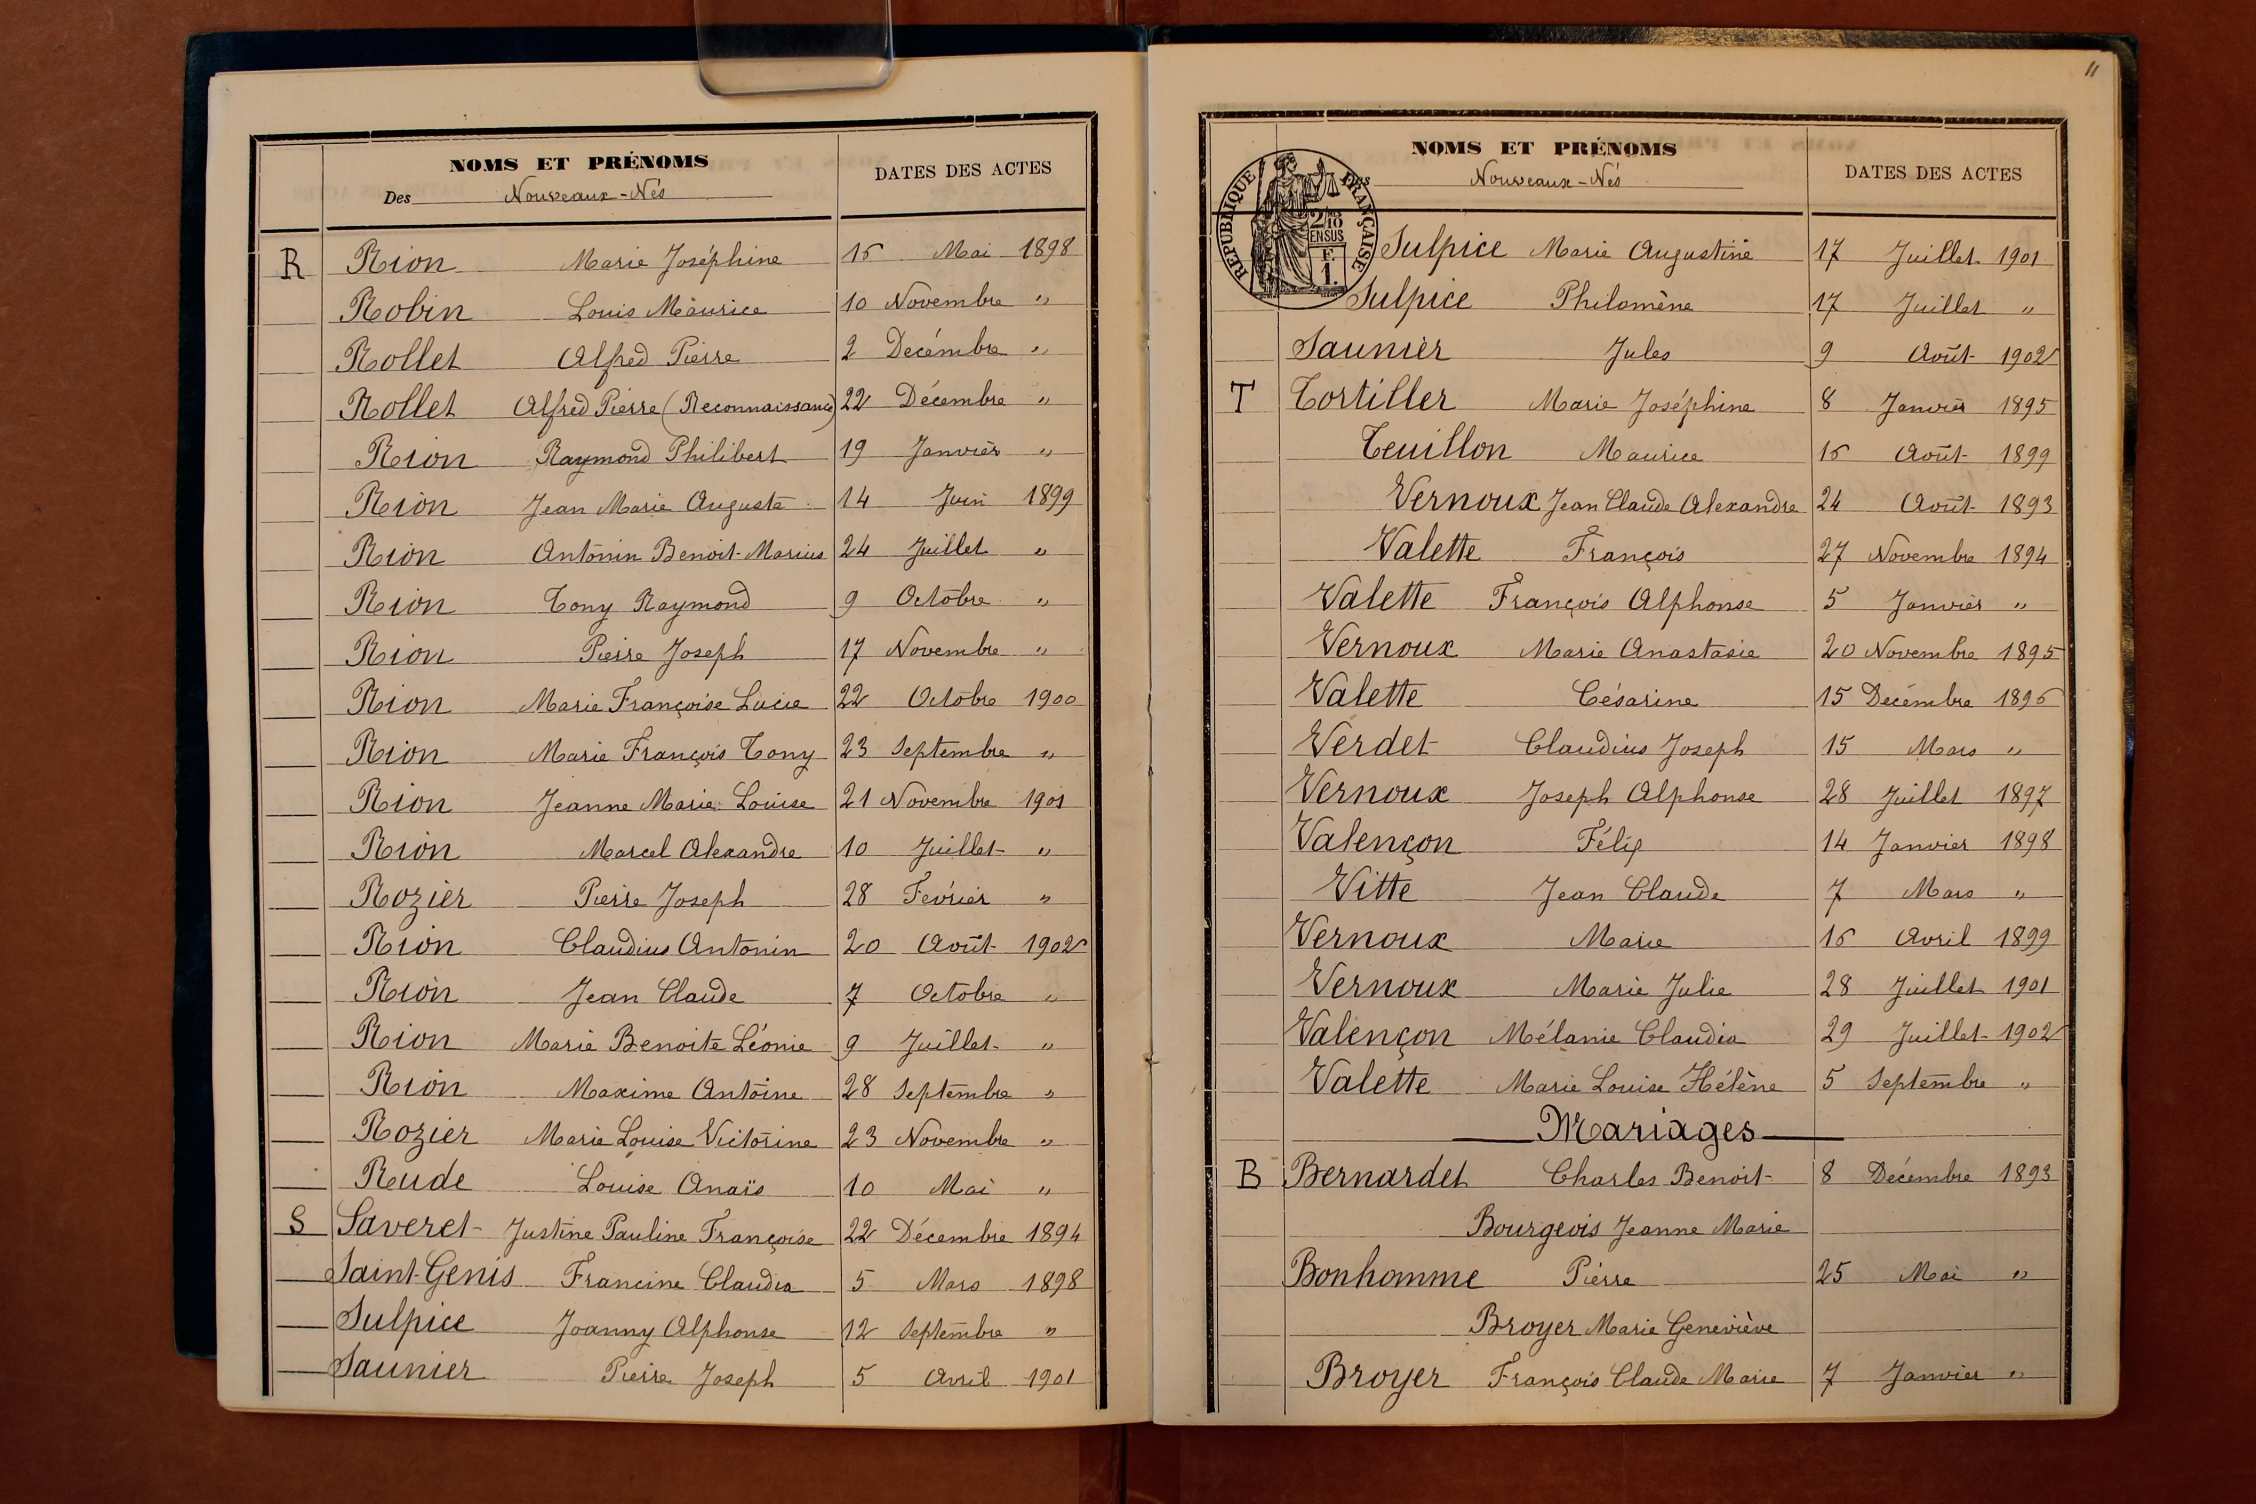 NOMS ET PRÉNOMS
DATES DES ACTES
Des Nouveaux-Nés
R Rion Marie Joséphine 16 Mai 1898
Robin Louis Maurice 10 Novembre "
Rollet Alfred Pierre 2 Decémbre "
Rollet Alfred Pierre (Reconnaissance) 22 Décembre "
Rion Raymond Philibert 19 Janvier "
Rion Jean Marie Auguste 14 Juin 1899
Rion Antonin Benoit-Marius 24 Juillet "
Rion Tony Raymond 9 Octobre "
Rion Pierre Joseph 17 Novembre "
Rion Marie Françoise Lucie 22 Octobre 1900
Rion Marie François Tony 23 Septembre "
Rion Jeanne Marie Louise 21 Novembre 1901
Rion Marcel Alexandre 10 Juillet "
Rozier Pierre Joseph 28 Fevrier "
Rion Claudius Antonin 20 Août 1902
Rion Jean Claude 7 Octobre "
Rion Marie Benoite Léonie 9 Juillet "
Rion Maxime Antoine 28 Septembre "
Rozier Marie Louise Victorine 23 Novembre "
Rude Louise Anaïs 10 Mai "
S Saveret Justine Pauline Françoise 22 Décembre 1894
Saint-Genis Francine Claudia 5 Mars 1898
Sulpice Joanny Alphonse 12 Septembre "
Saunier Pierre Joseph 5 Avril 1901
11
NOMS ET PRÉNOMS
DATES DES ACTES
Des Nouveaux-Nés
RÉPUBLIQUE FRANÇAISE
2/10
EN SUS
F.
1.
Sulpice Marie Augustine 17 Juillet 1901
Sulpice Philomène 17 Juillet "
Saunier Jules 9 Août 1902
T Tortiller Marie Joséphine 8 Janvier 1895
Teuillon Maurice 16 Août 1899
Vernoux Jean Claude Alexandre 24 Août 1893
Valette François 27 Novembre 1894
Valette François Alphonse 5 Janvier "
Vernoux Marie Anastasie 20 Novembre 1895
Valette Césarine 15 Decémbre 1896
Verdet Claudius Joseph 15 Mars "
Vernoux Joseph Alphonse 28 Juillet 1897
Valençon Félix 14 Janvier 1898
Vitte Jean Claude 7 Mars "
Vernoux Marie 16 Avril 1899
Vernoux Marie Julie 28 Juillet 1901
Valençon Mélanie Claudia 29 Juillet 1902
Valette Marie Louise Hélène 5 Septembre "
Mariages
B Bernardet Charles Benoit 8 Decémbre 1893
Bourgeois Jeanne Marie
Bonhomme Pierre 25 Mai "
Broyer Marie Geneviève
Broyer François Claude Marie 7 Janvier "